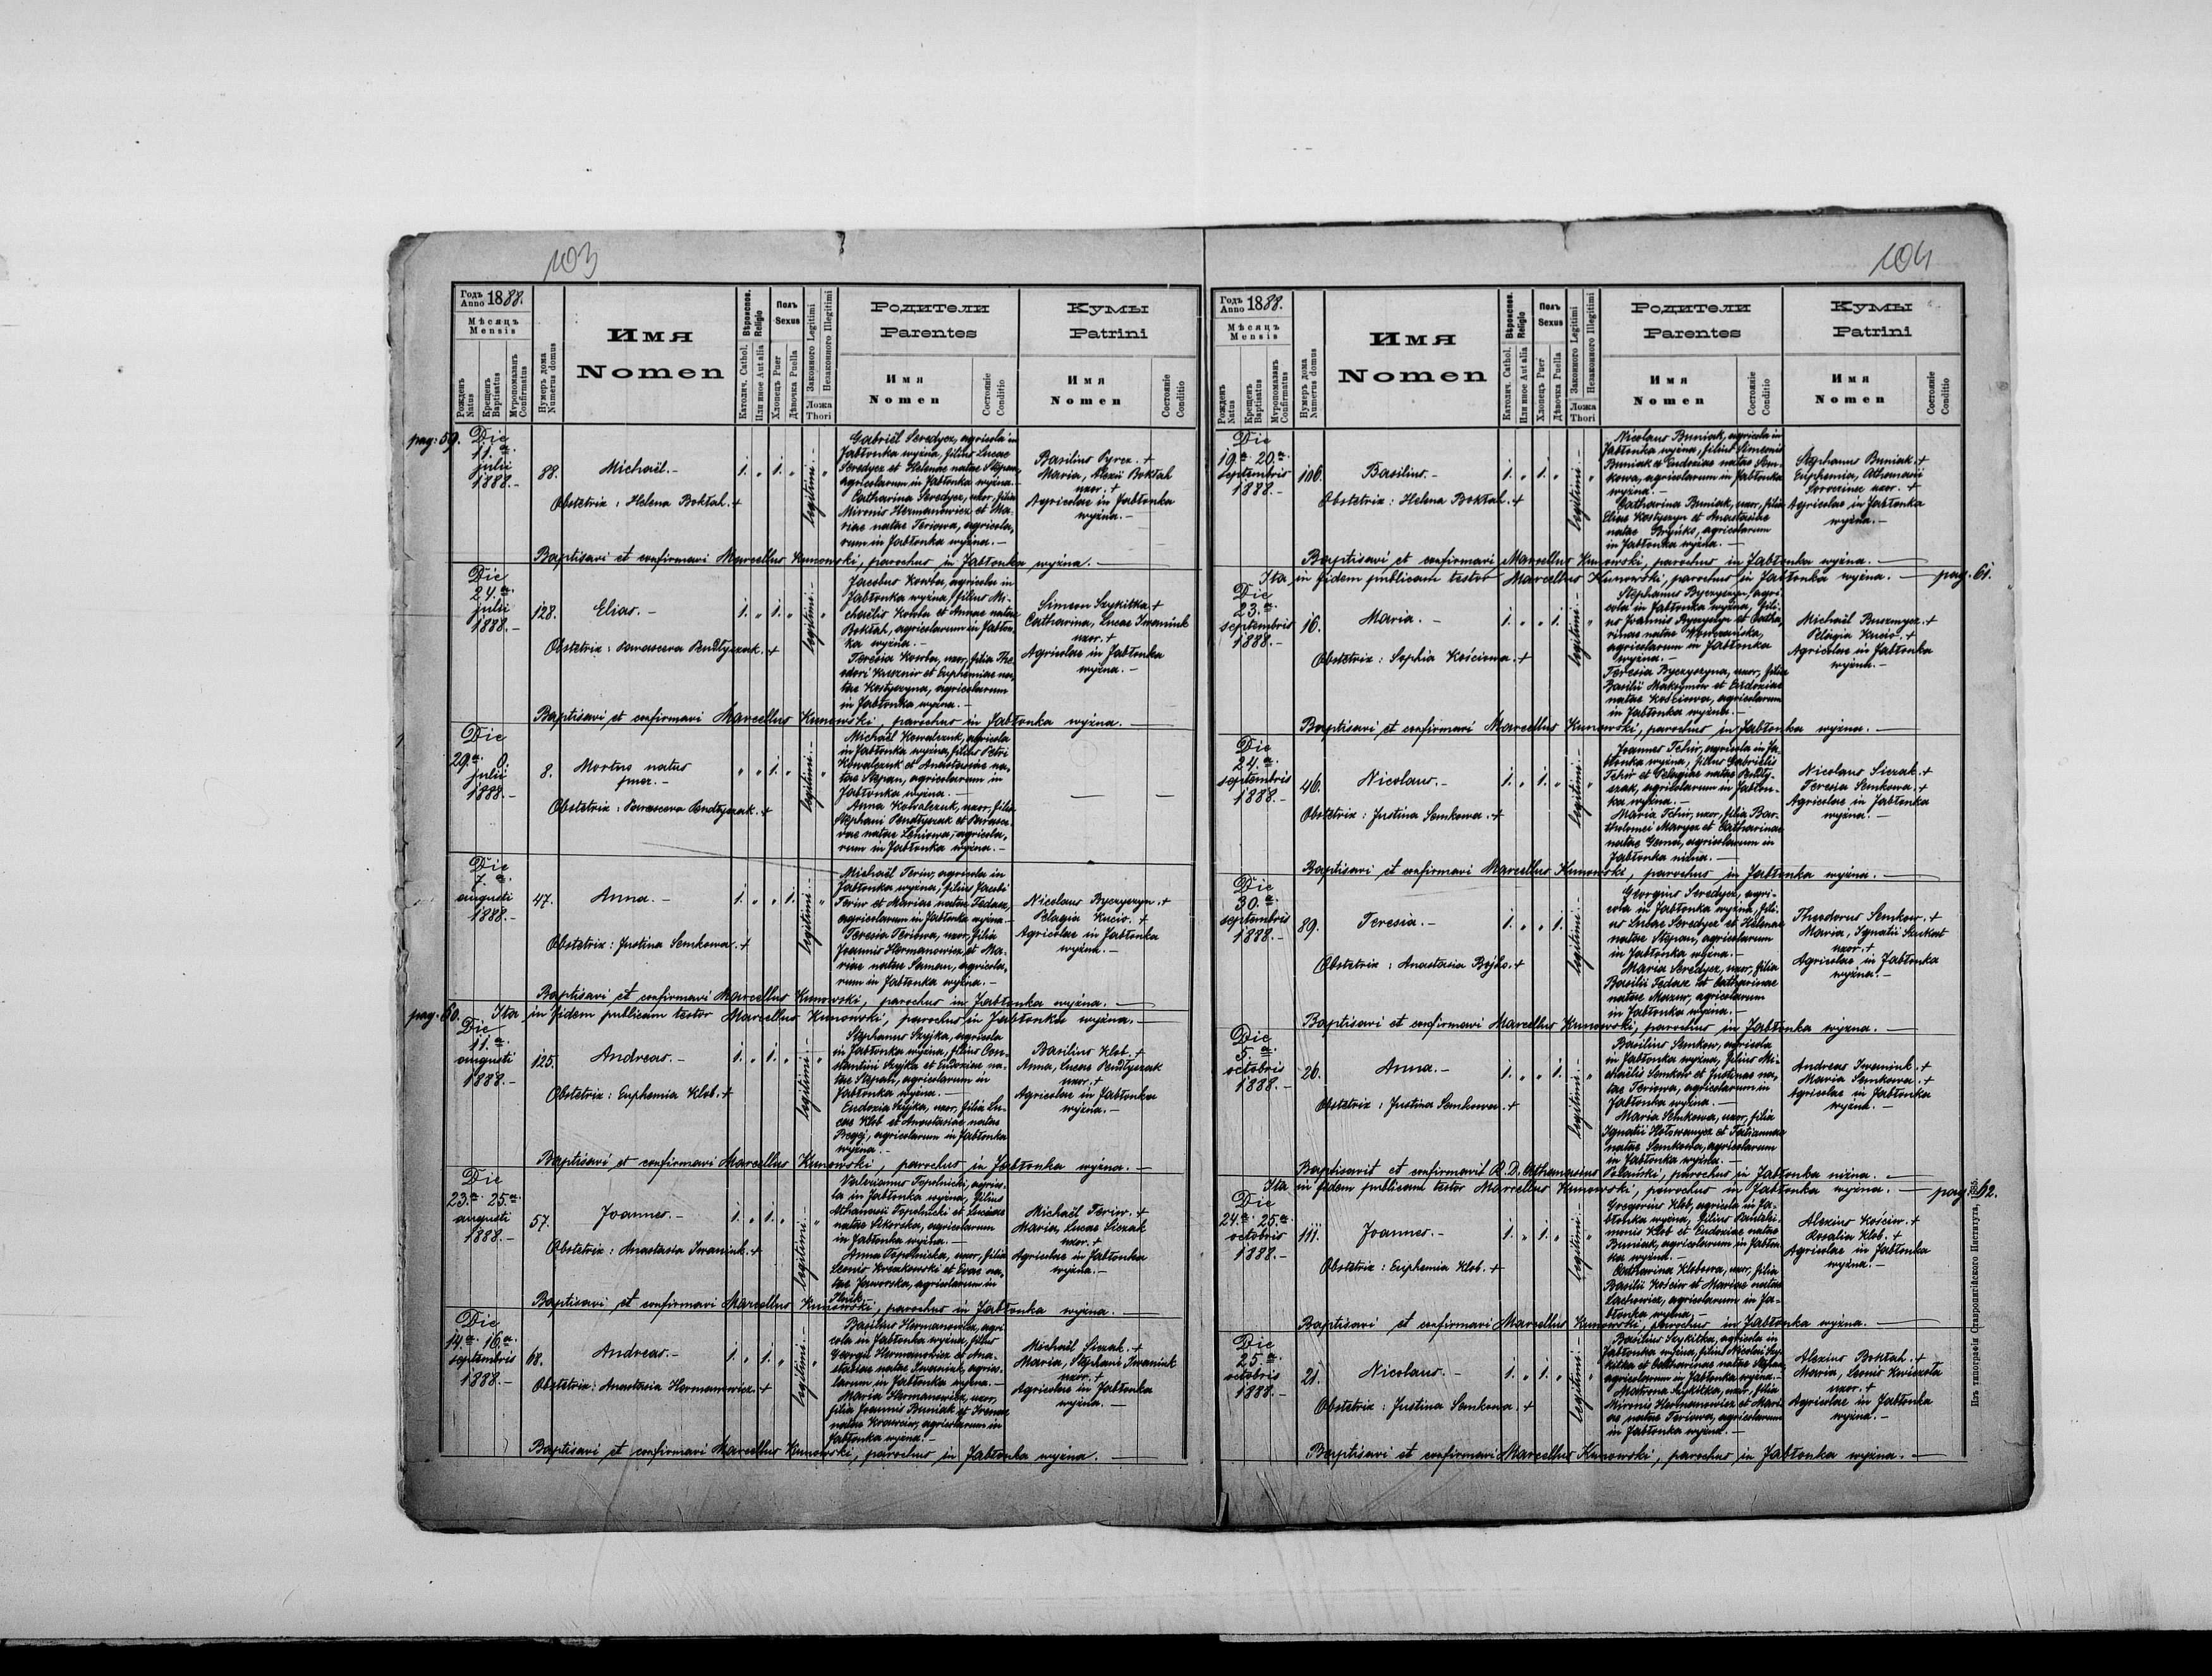 103
Годъ Anno 1888.
Мѣсяцъ Mensis
Рожденъ Natus
Крещенъ Baptisatus
Мѵропомазанъ Confirmatus
Нумеръ дома Numerus domus
Имя
Nomen
Вѣроиспов. Religio
Католич. Cathol.
Или иное Aut alia
Полъ Sexus
Хлопецъ Puer
Дѣвочка Puella
Законного Legitimi
Незаконного Illegitimi
Ложа Thori
Родители
Parentes
Имя
Nomen
Состояніе Conditio
Кумы
Patrini
Имя
Nomen
Состояніе Conditio
pag: 59.
Die
11.a
julii
1888.-
88.
Michaël.-
1. „ 1. „
legitimi.-
„
Obstetrix: Helena Bokłah.+
Gabriël Seredycz, agricola in
Jabłonka wyżna, filius Lucae
Seredycz et Helenae natae Stepan,
agricolarum in Jabłonka wyżna.-
Catharina Seredycz, uxor, filia
Mironis Hermanowicz et Ma-
riae natae Teriowa, agricola,
rum in Jabłonka wyżna.-
Basilius Pyrcz.+
Maria, Alexii Bokłah
uxor.+
Agricolae in Jabłonka
wyżna.-
Baptisavi et confirmavi Marcellus Kunowski, parochus in Jabłonka wyżna.-
Die
24.a
julii
1888.-
128.
Elias.-
1. „ 1. „
legitimi.-
„
Obstetrix: Parasceva Pendłyszak.+
Jacobus Kowba, agricola in
Jabłonka wyżna, filius Mi-
chaëlis Kowba et Annae natae
Bokłah, agricolarum in Jabłon-
ka wyżna.-
Teresia Kowba, uxor, filia The-
odori Kusznir et Euphemiae na-
tae Kostyszyna, agricolarum
in Jabłonka wyżna.-
Simeon Szykitka.+
Catharina, Lucae Iwaniuk
uxor.+
Agricolae in Jabłonka
wyżna.-
Baptisavi et confirmavi Marcellus Kunowski, parochus in Jabłonka wyżna.
Die
29.a 0.
julii
1888.-
8.
Mortuo natus
puer.-
„ „ 1. „
legitimi.-
„
Obstetrix: Parasceva Pendłyszak.+
Michaël Kowalczuk, agricola
in Jabłonka wyżna, filius Petri
Kowalczuk et Anastasiae na-
tae Stepan, agricolarum in
Jabłonka wyżna.-
Anna Kowalczuk, uxor, filia
Stephani Pendłyszak et Parasce-
vae natae Leniowa, agricola,
rum in Jabłonka wyżna.-
Die
7.a
augusti
1888.-
47.
Anna.-
1. „ „ 1.
legitimi.-
„
Obstetrix: Justina Semkowa.+
Michaël Teriw, agricola in
Jabłonka wyżna, filius Jacobi
Teriw et Mariae natae Fedasz,
agricolarum in Jabłonka wyżna.-
Teresia Teriowa, uxor, filia
Joannis Hermanowicz et Ma-
riae natae Saman, agricola,
rum in Jabłonka wyżna.-
Nicolaus Byczyszyn.+
Pelagia Kucio.+
Agricolae in Jabłonka
wyżna.-
Baptisavi et confirmavi Marcellus Kunowski, parochus in Jabłonka wyżna.
pag. 60. Ita in fidem publicam testor Marcellus Kunowski, parochus in Jabłonka wyżna.-
Die
11.a
augusti
1888.-
125.
Andreas.-
1. „ 1. „
legitimi.-
„
Obstetrix: Euphemia Klob.+
Stephanus Szyjka, agricola
in Jabłonka wyżna, filius Con-
stantini Szyjka et Eudoxiae na-
tae Stepan, agricolarum in
Jabłonka wyżna.-
Eudoxia Szyjka, uxor, filia Lu-
cae Klob et Anastasiae natae
agricolarum in Jabłonka
wyżna.-
Basilius Klob.+
Anna, Lucae Pendłyszak
uxor.+
Agricolae in Jabłonka
wyżna.-
Baptisavi et confirmavi Marcellus Kunowski, parochus in Jabłonka wyżna.-
Die
23.a 25.a
augusti
1888.-
57.
Joannes.-
1. „ 1. „
legitimi.-
„
Obstetrix: Anastasia Iwaniuk.+
Valerianus Topolnicki, agrico-
la in Jabłonka wyżna, filius
Athanasii Topolnicki et Luciae
natae Sikorska, agricolarum
in Jabłonka wyżna.-
Anna Topolnicka, uxor, filia
Leonis Kreczkowski et Evae na-
tae Jaworska, agricolarum in
Michaël Teriw.+
Maria, Lucae Siczak
uxor.+
Agricolae in Jabłonka
wyżna.-
Baptisavi et confirmavi Marcellus Kunowski, parochus in Jabłonka wyżna.
Die
14.a 16.a
septembris
1888.-
68.
Andreas.-
1. „ 1. „
legitimi.-
„
Obstetrix: Anastasia Hermanowicz.+
Basilius Hermanowicz, agri
cola in Jabłonka wyżna, filius
Georgii Hermanowicz et Ana-
stasiae natae Iwaniuk, agrico-
larum in Jabłonka wyżna.-
Maria Hermanowicz, uxor,
filia Joannis Buniak et Irenae
natae Krawciw, agricolarum in
Jabłonka wyżna.-
Michaël Siczak.+
Maria, Stephani Iwaniuk
uxor.+
Agricolae in Jabłonka
wyżna.-
Baptisavi et confirmavi Marcellus Kunowski, parochus in Jabłonka wyżna.
104
Годъ Anno 1888.
Мѣсяцъ Mensis
Рожденъ Natus
Крещенъ Baptisatus
Мѵропомазанъ Confirmatus
Нумеръ дома Numerus domus
Имя
Nomen
Вѣроиспов. Religio
Католич. Cathol.
Или иное Aut alia
Полъ Sexus
Хлопецъ Puer
Дѣвочка Puella
Законного Legitimi
Незаконного Illegitimi
Ложа Thori
Родители
Parentes
Имя
Nomen
Состояніе Conditio
Кумы
Patrini
Имя
Nomen
Состояніе Conditio
Die
19.a 20.a
septembris
1888.-
106.
Basilius.-
1. „ 1. „
legitimi.-
„
Obstetrix: Helena Bokłah.+
Nicolaus Buniak, agricola in
Jabłonka wyżna, filius Simeonis
Buniak et Eudoxiae natae Sem-
kowa, agricolarum in Jabłonka
wyżna.-
Catharina Buniak, uxor, filia
Eliae Kostyszyn et Anastasiae
natae agricolarum
in Jabłonka wyżna.-
Stephanus Buniak.+
Euphemia, Athanasii
uxor.+
Agricolae in Jabłonka
wyżna.-
Baptisavi et confirmavi Marcellus Kunowski, parochus in Jabłonka wyżna.
Ita in fidem publicam testor Marcellus Kunowski, parochus in Jabłonka wyżna.- pag. 61.
Die
23.a
septembris
1888.-
16.
Maria.-
1. „ „ 1.
legitimi.-
„
Obstetrix: Sophia Kościowa.+
Stephanus Byczyszyn, agri
cola in Jabłonka wyżna, fili-
us Joannis Byczyszyn et Catha,
rinae natae
agricolarum in Jabłonka
wyżna.-
Teresia Byczyszyna, uxor, filia
Basilii Maksymow et Eudoxiae
natae Kościowa, agricolarum
in Jabłonka wyżna.-
Michaël Buszmycz.+
Pelagia Kucio.+
Agricolae in Jabłonka
wyżna.-
Baptisavi et confirmavi Marcellus Kunowski, parochus in Jabłonka wyżna.
Die
24.a
septembris
1888.-
46.
Nicolaus.-
1. „ 1. „
legitimi.-
„
Obstetrix: Justina Semkowa.+
Joannes Fehir, agricola in Ja-
błonka wyżna, filius Gabriëlis
Fehir et Pelagiae natae Pendły-
szak, agricolarum in Jabłon-
ka wyżna.-
Maria Fehir, uxor, filia Bar-
tholomei Marycz et Catharinae
natae agricolarum in
Jabłonka niżna.-
Nicolaus Siczak.+
Teresia Semkowa.+
Agricolae in Jabłonka
wyżna.-
Baptisavi et confirmavi Marcellus Kunowski, parochus in Jabłonka wyżna.
Die
30.a
septembris
1888.-
89.
Teresia.-
1. „ „ 1.
legitimi.-
„
Obstetrix: Anastasia Bojko.+
Georgius Seredycz, agri-
cola in Jabłonka wyżna, fili-
us Lucae Seredycz et Helenae
natae Stepan, agricolarum
in Jabłonka wyżna.-
Maria Seredycz, uxor, filia
Basilii Fedasz et Catharinae
natae Mazur, agricolarum
in Jabłonka wyżna.-
Theodorus Semkow.+
Maria, Ignatii
uxor.+
Agricolae in Jabłonka
wyżna.-
Baptisavi et confirmavi Marcellus Kunowski, parochus in Jabłonka wyżna.
Die
5.a
octobris
1888.-
26.
Anna.-
1. „ „ 1.
legitimi.-
„
Obstetrix: Justina Semkowa.+
Basilius Semkow, agricola
in Jabłonka wyżna, filius Mi-
chaëlis Semkow et Justinae na,
tae Teriowa, agricolarum in
Jabłonka wyżna.-
Maria Semkowa, uxor, filia
Ignatii Hołowanycz et Tatiannae
natae Semkowa, agricolarum
in Jabłonka wyżna.-
Andreas Iwaniuk.+
Maria Semkowa.+
Agricolae in Jabłonka
wyżna.-
Baptisavit et confirmavit R. D. Athanasius Polański, parochus in Jabłonka niżna.
Ita in fidem publicam testor Marcellus Kunowski, parochus in Jabłonka wyżna.- pag. 62.
Die
24.a 25.a
octobris
1888.-
111.
Joannes.-
1. „ 1. „
legitimi.-
„
Obstetrix: Euphemia Klob.+
Gregorius Klob, agricola in Ja-
błonka wyżna, filius Pantelei-
monis Klob et Eudoxiae natae
Buniak, agricolarum in Jabłon-
ka wyżna.-
Catharina Klobowa, uxor, filia
Basilii Kościw et Mariae natae
Lachowicz, agricolarum in Ja-
błonka wyżna.-
Alexius Kościw.+
Rosalia Klob.+
Agricolae in Jabłonka
wyżna.-
Baptisavi et confirmavi Marcellus Kunowski, parochus in Jabłonka wyżna.
Die
25.a
octobris
1888.-
21.
Nicolaus.-
1. „ 1. „
legitimi.-
„
Obstetrix: Justina Semkowa.+
Basilius Szykitka, agricola in
Jabłonka wyżna, filius Nicolai Szy-
kitka et Catharinae natae Stepan,
agricolarum in Jabłonka wyżna.-
Matrona Szykitka, uxor, filia
Mironis Hermanowicz et Mari-
ae natae Teriowa, agricolarum
in Jabłonka wyżna.-
Alexius Bokłah.+
Maria, Leonis
uxor.+
Agricolae in Jabłonka
wyżna.-
Baptisavi et confirmavi Marcellus Kunowski, parochus in Jabłonka wyżna.-
Изъ типографіи Ставропигійского Института,